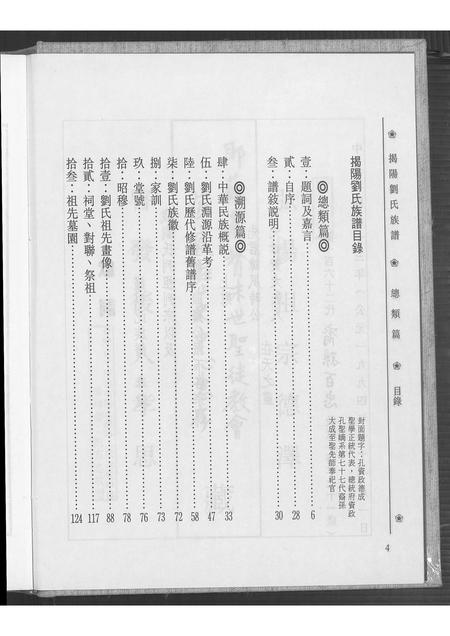 揭陽劉氏族譜　總類篇　目錄
4
揭陽劉氏族譜目錄
封面題字：孔資政德成
聖學正統代表，總統府資政
孔聖嫡系第七十七代裔孫
大成至聖先師奉祀官
◎總類篇◎
壹：題詞及嘉言 6
貳：自序 28
叁：譜敘說明 30
◎溯源篇◎
肆：中華民族概說 33
伍：劉氏淵源沿革考 47
陸：劉氏歷代修譜舊譜序 58
柒：劉氏族徽 72
捌：家訓 73
玖：堂號 76
拾：昭穆 78
拾壹：劉氏祖先畫像 88
拾貳：祠堂、對聯、祭祖 117
拾叁：祖先墓園 124